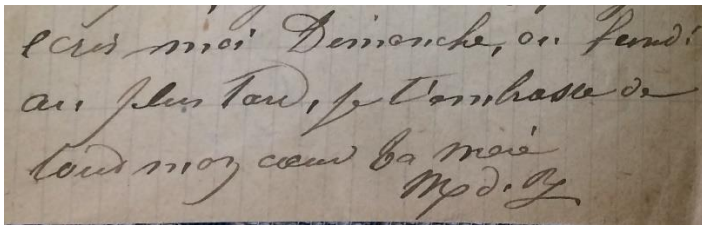 ecris moi Dimanche, ou lundi
au plus Tard, je t'embrasse de
tout mon cœur ta mère